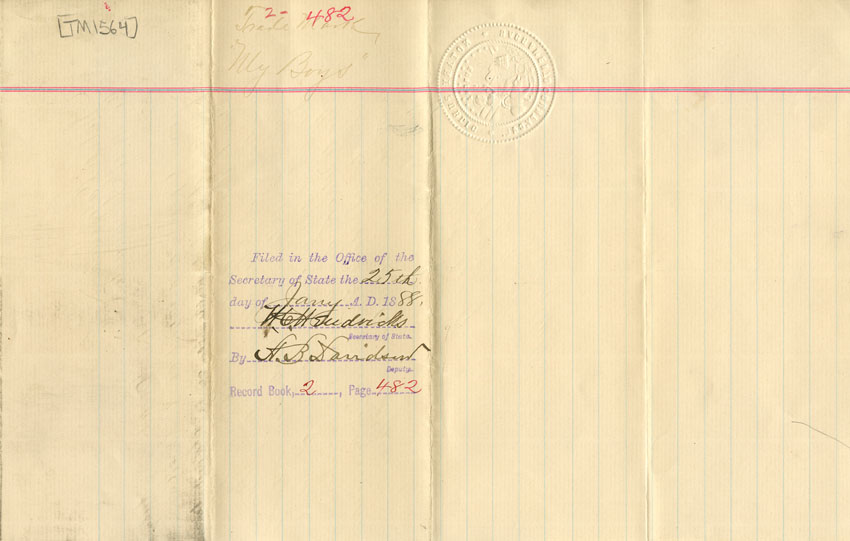 [TM1564]
2- 482
Trade Mark,
"My Boys"
Filed in the Office of the
Secretary of State the 25th
day of Jany A. D. 1888.
W C Hendricks
Secretary of State.
By A. B. Davidson
Deputy.
Record Book, 2, Page 482